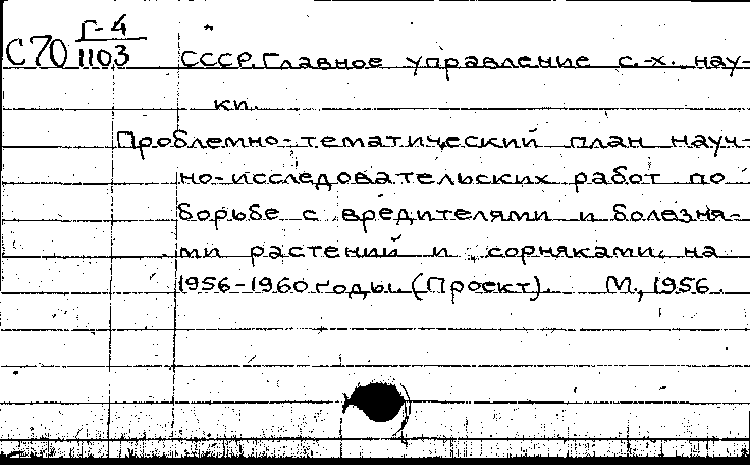 Г-4
С70 1103
СССР. Главное управление с.-х. нау-
ки.
Проблемно-тематический план науч-
но-исследовательских работ по
борьбе с вредителями и болезня-
ми растений и сорняками на
1956-1960 годы. (Проект). М., 1956.